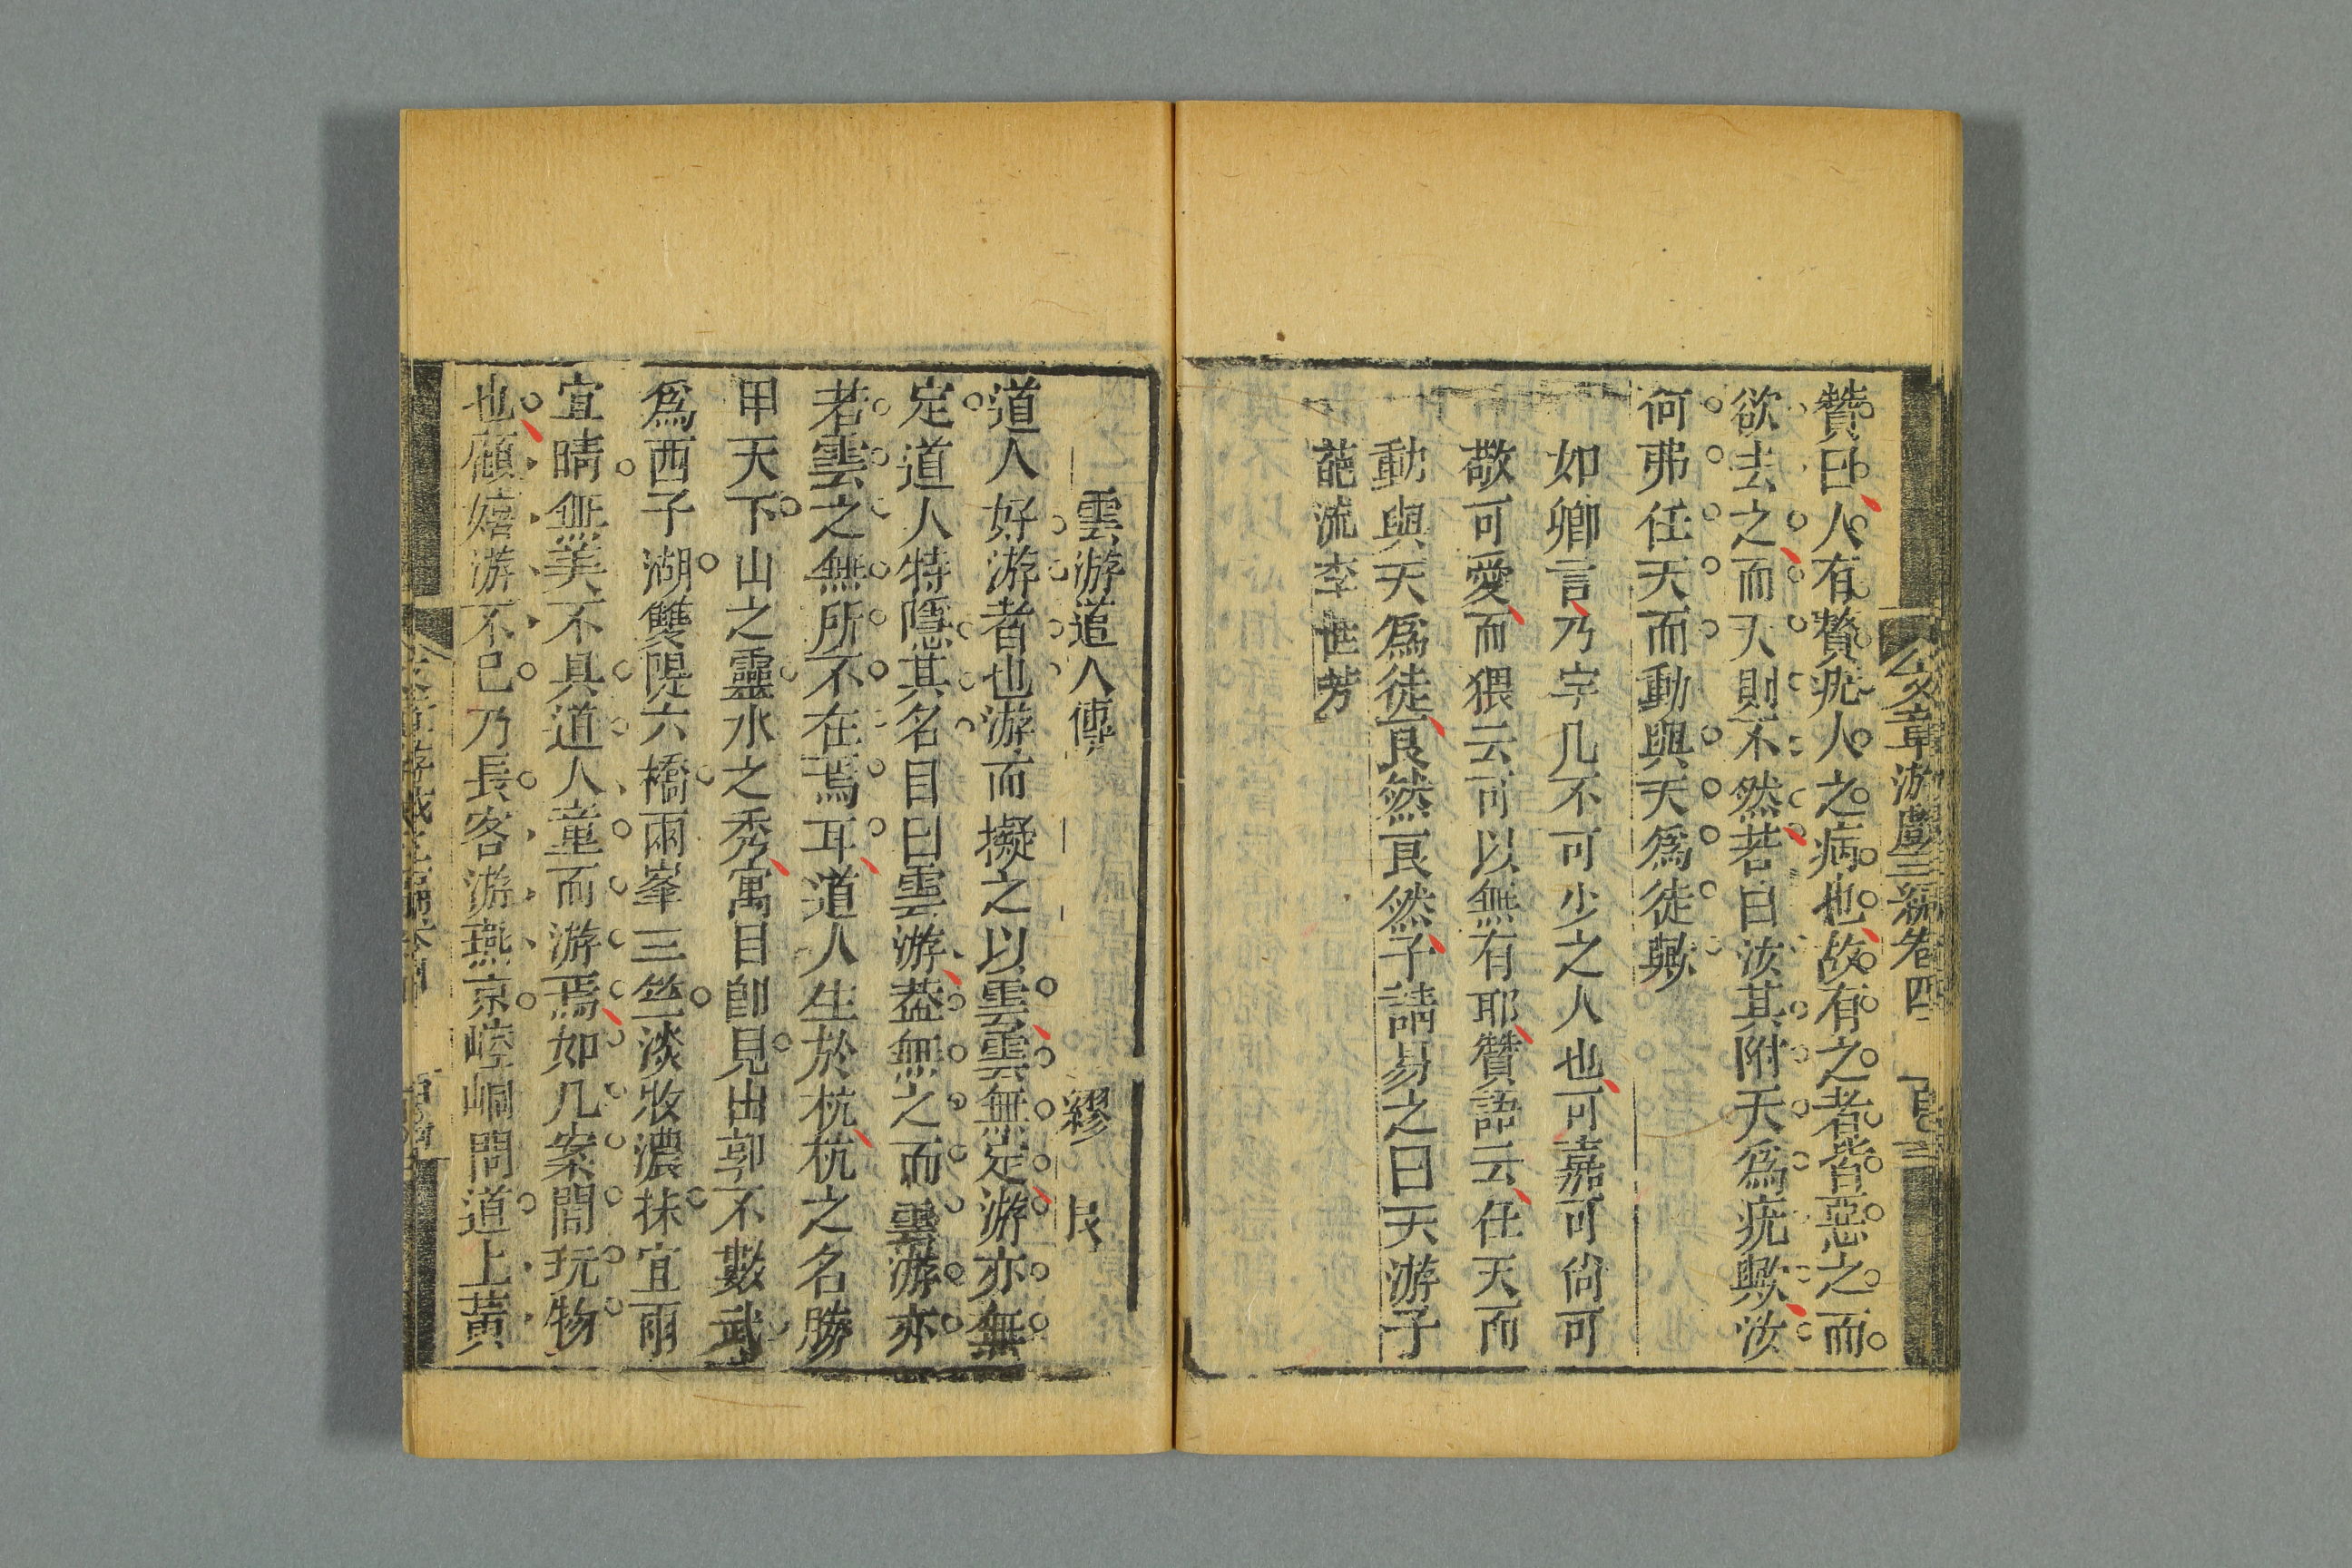 文章游戲三編卷四
贊曰人有贅疣人之病也故有之者皆惡之而
欲去之而天則不然若曰汝其附天為疣歟汝
何弗任天而動與天爲徒歟
如卿言乃字几不可少之人也可嘉可尙可
敬可愛而猥云可以無有耶贊語云任天而
動與天爲徒良然良然子請易之曰天游子
葩流李世芳
雲游道人傳 繆艮
道人好游者也游而擬之以雲雲無定游亦無
定道人特隱其名目曰雲游葢無之而雲游亦
若雲之無所不在焉耳道人生於杭杭之名勝
甲天下山之靈水之秀寓目卽見出郭不數武
爲西子湖雙隄六橋兩峯三竺淡妝濃抹宜雨
宜晴無美不具道人童而游焉如几案間玩物
也顧嬉游不已乃長客游燕京崆峒問道上黃